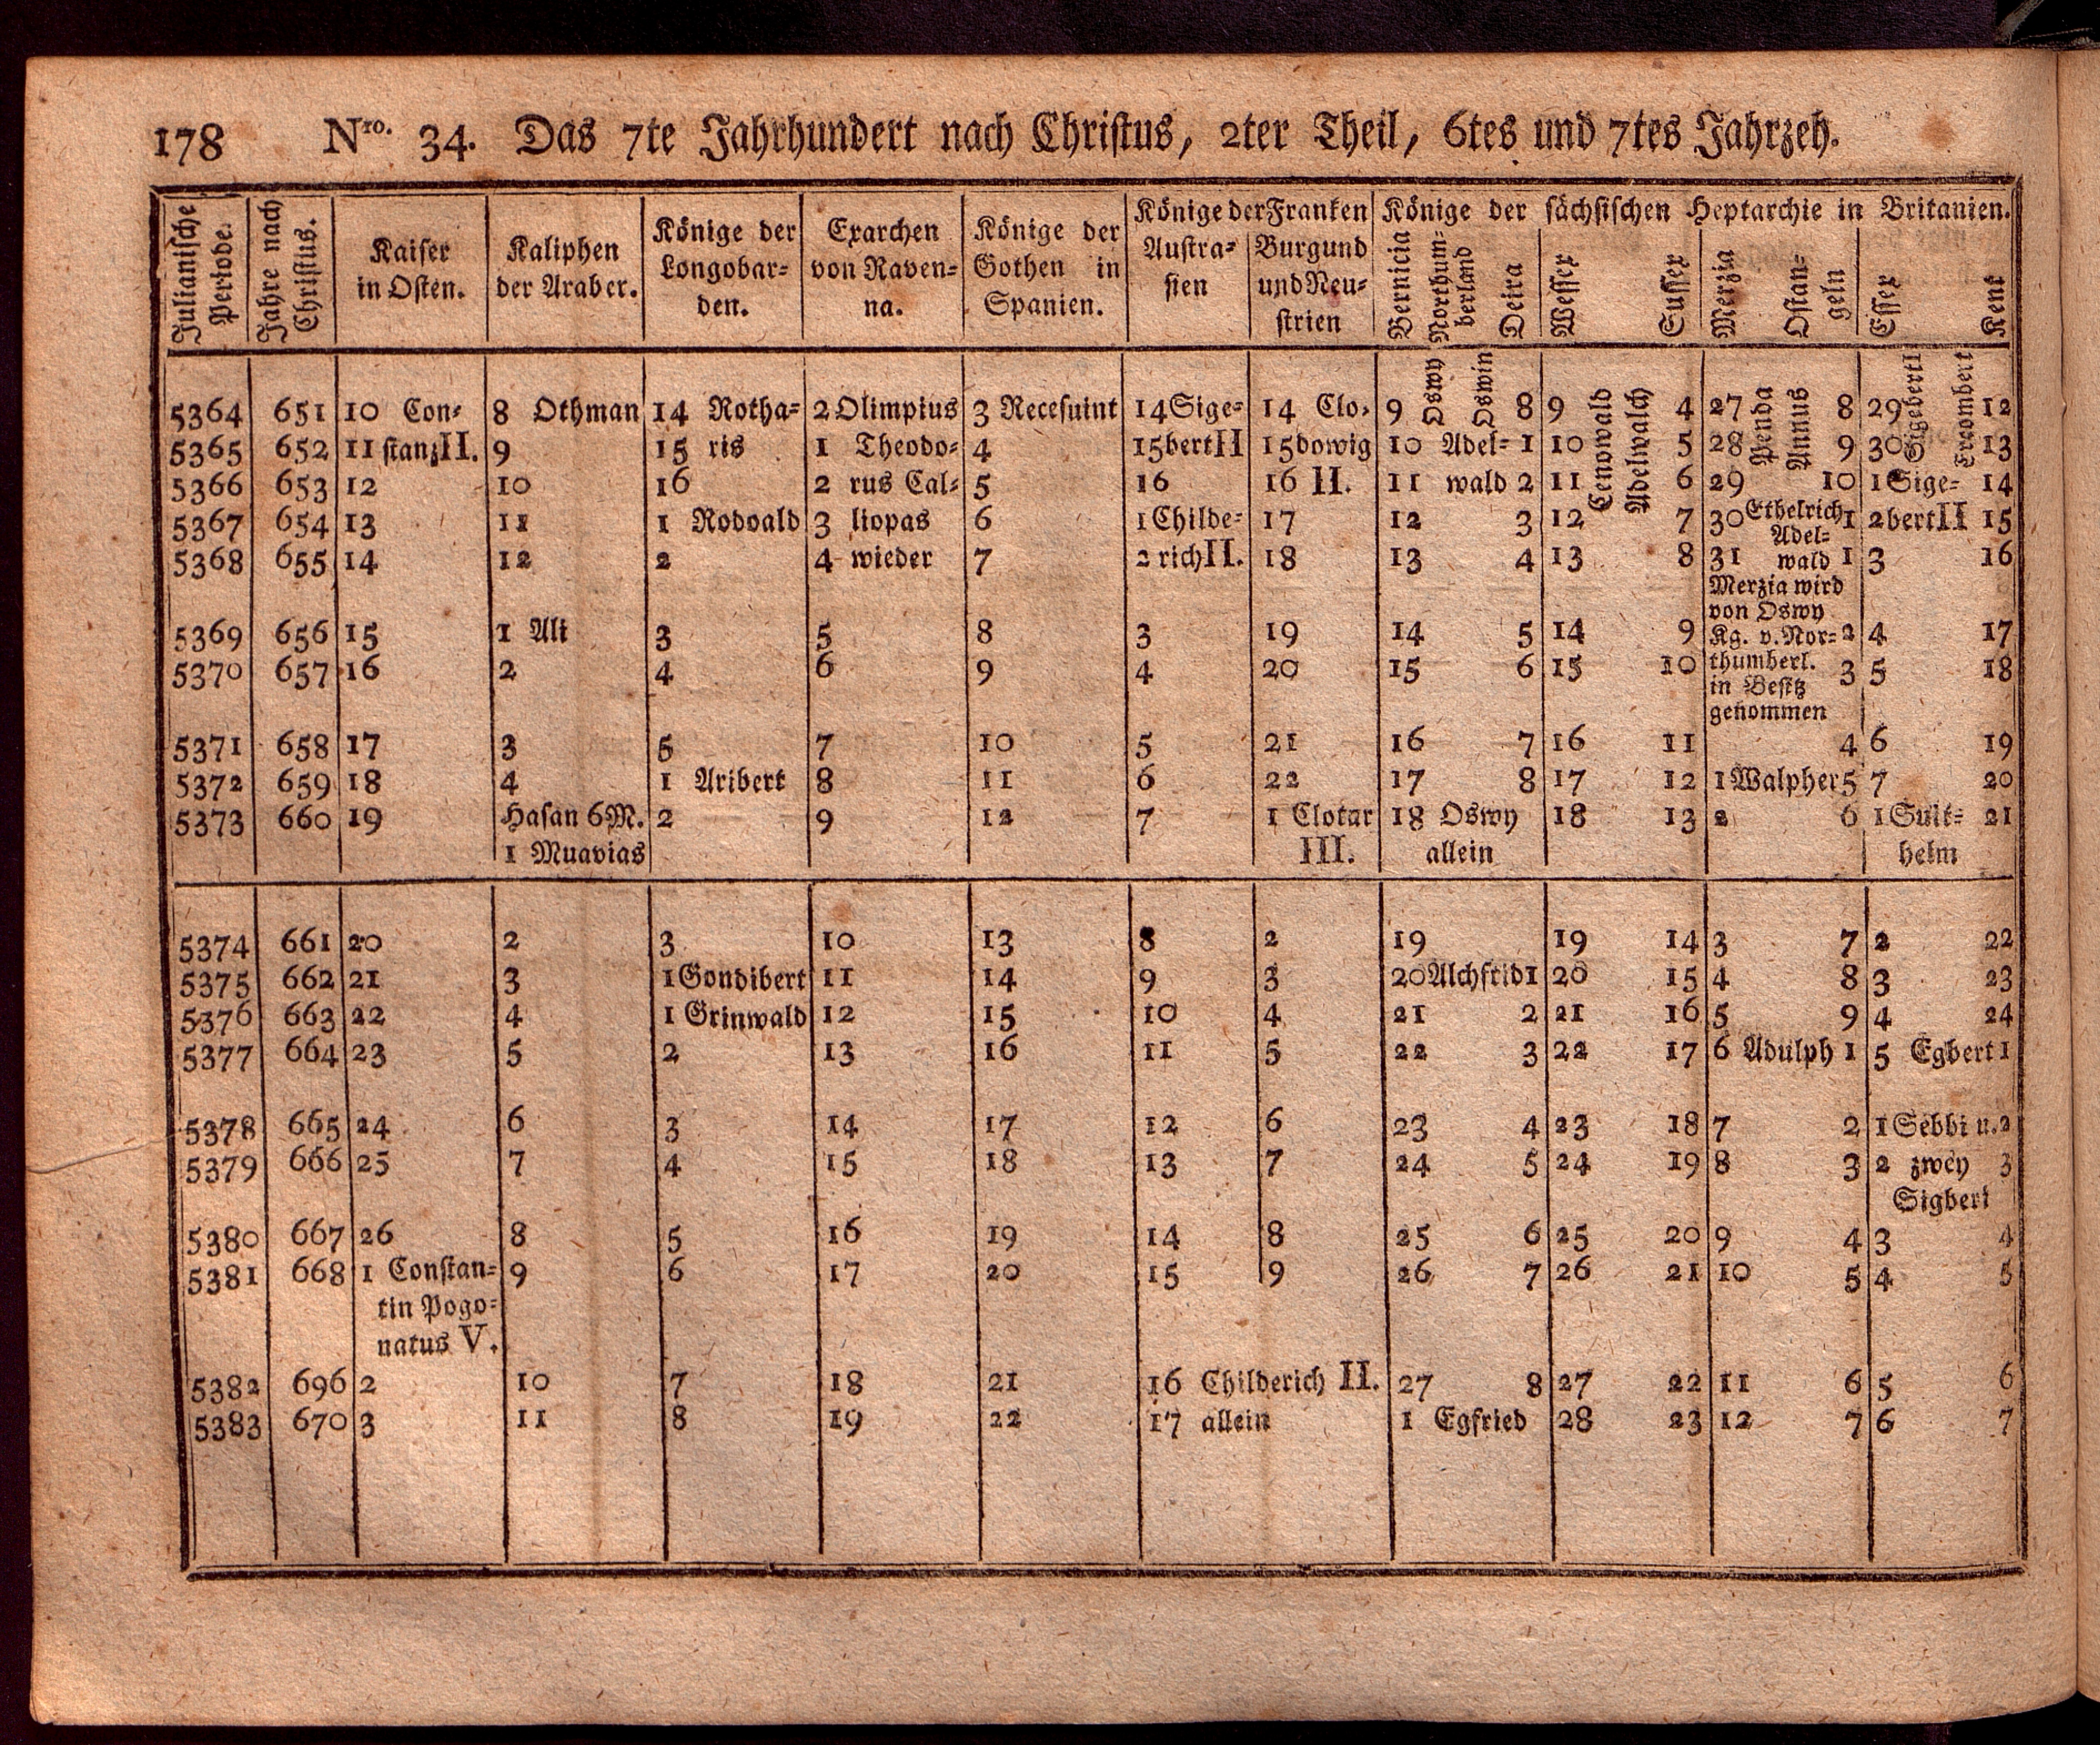 178 Nro. 34. Das 7te Jahrhundert nach Christus, 2ter Theil, 6tes und 7tes Jahrzeh.
Julianische Periode. Jahre nach Christus. Kaiser in Osten. Kaliphen der Araber. Könige der Longobarden. Exarchen von Ravenna. Könige der Gothen in Spanien. Könige der Franken Könige der sächsischen Heptarchie in Britanien.
Austrasien Burgund und Neustrien Bernicia Northumberland Deira Wessex Sussex Merzia Ostangeln Essex Kent
5364 651 10 Con- 8 Othman 14 Rotha- 2 Olimpius 3 Recesuint 14 Sige- 14 Clo- 9 Oswy Oswin 8 9 Cenowald Adelwalch 4 27 Penda Annus 8 29 Sigebert I Ercombert 12
5365 652 11 stanz II. 9 15 ris 1 Theodo- 4 15 bert II 15 dowig 10 Adel- 1 10 5 28 9 30 13
5366 653 12 10 16 2 rus Cal- 5 16 16 II. 11 wald 2 11 6 29 10 1 Sige- 14
5367 654 13 11 1 Rodoald 3 liopas 6 1 Childe- 17 12 3 12 7 30 Ethelrich 1 2 bert II 15
Adel-
5368 655 14 12 2 4 wieder 7 2 rich II. 18 13 4 13 8 31 wald 1 3 16
Merzia wird
von Oswy
5369 656 15 1 Ali 3 5 8 3 19 14 5 14 9 Kg. v. Nor- 2 4 17
thumberl.
5370 657 16 2 4 6 9 4 20 15 6 15 10 3 5 18
in Besitz
genommen
5371 658 17 3 5 7 10 5 21 16 7 16 11 4 6 19
5372 659 18 4 1 Aribert 8 11 6 22 17 8 17 12 1 Walpher 5 7 20
5373 660 19 Hasan 6 M. 2 9 12 7 1 Clotar 18 Oswy 18 13 2 6 1 Suit- 21
1 Muavias III. allein helm
5374 661 20 2 3 10 13 8 2 19 19 14 3 7 2 22
5375 662 21 3 1 Gondibert 11 14 9 3 20 Alchfrid 1 20 15 4 8 3 23
5376 663 22 4 1 Grinwald 12 15 10 4 21 2 21 16 5 9 4 24
5377 664 23 5 2 13 16 11 5 22 3 22 17 6 Adulph 1 5 Egbert 1
5378 665 24 6 3 14 17 12 6 23 4 23 18 7 2 1 Sebbi u. 2
5379 666 25 7 4 15 18 13 7 24 5 24 19 8 3 2 zwey 3
Sigbert
5380 667 26 8 5 16 19 14 8 25 6 25 20 9 4 3 4
5381 668 1 Constan- 9 6 17 20 15 9 26 7 26 21 10 5 4 5
tin Pogo-
natus V.
5382 696 2 10 7 18 21 16 Childerich II. 27 8 27 22 11 6 5 6
5383 670 3 11 8 19 22 17 allein 1 Egfried 28 23 12 7 6 7